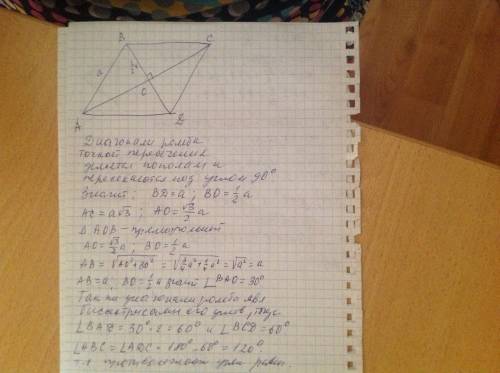 B
C
a
O
A
D
Диагонали ромба
точкой пересечения
делятся пополам и
пересекаются под углом 90°
Значит; BD=a; BO=1/2 a
AC=a√3; AO=√3/2 a
△ AOB - прямоугольный
AO=√3/2 a; BO=1/2 a
AB=√AO²+BO² = √3/4 a²+1/4 a² = √a² = a
AB=a; BO=1/2 и значит ∠BAO=30°
Так как диагонали ромба явл
биссектрисами его углов, то
∠BAD=30°·2=60° и ∠BCD=60°
∠ABC=∠ADC=180°-60°=120°
т.к. противолежат углы равны.